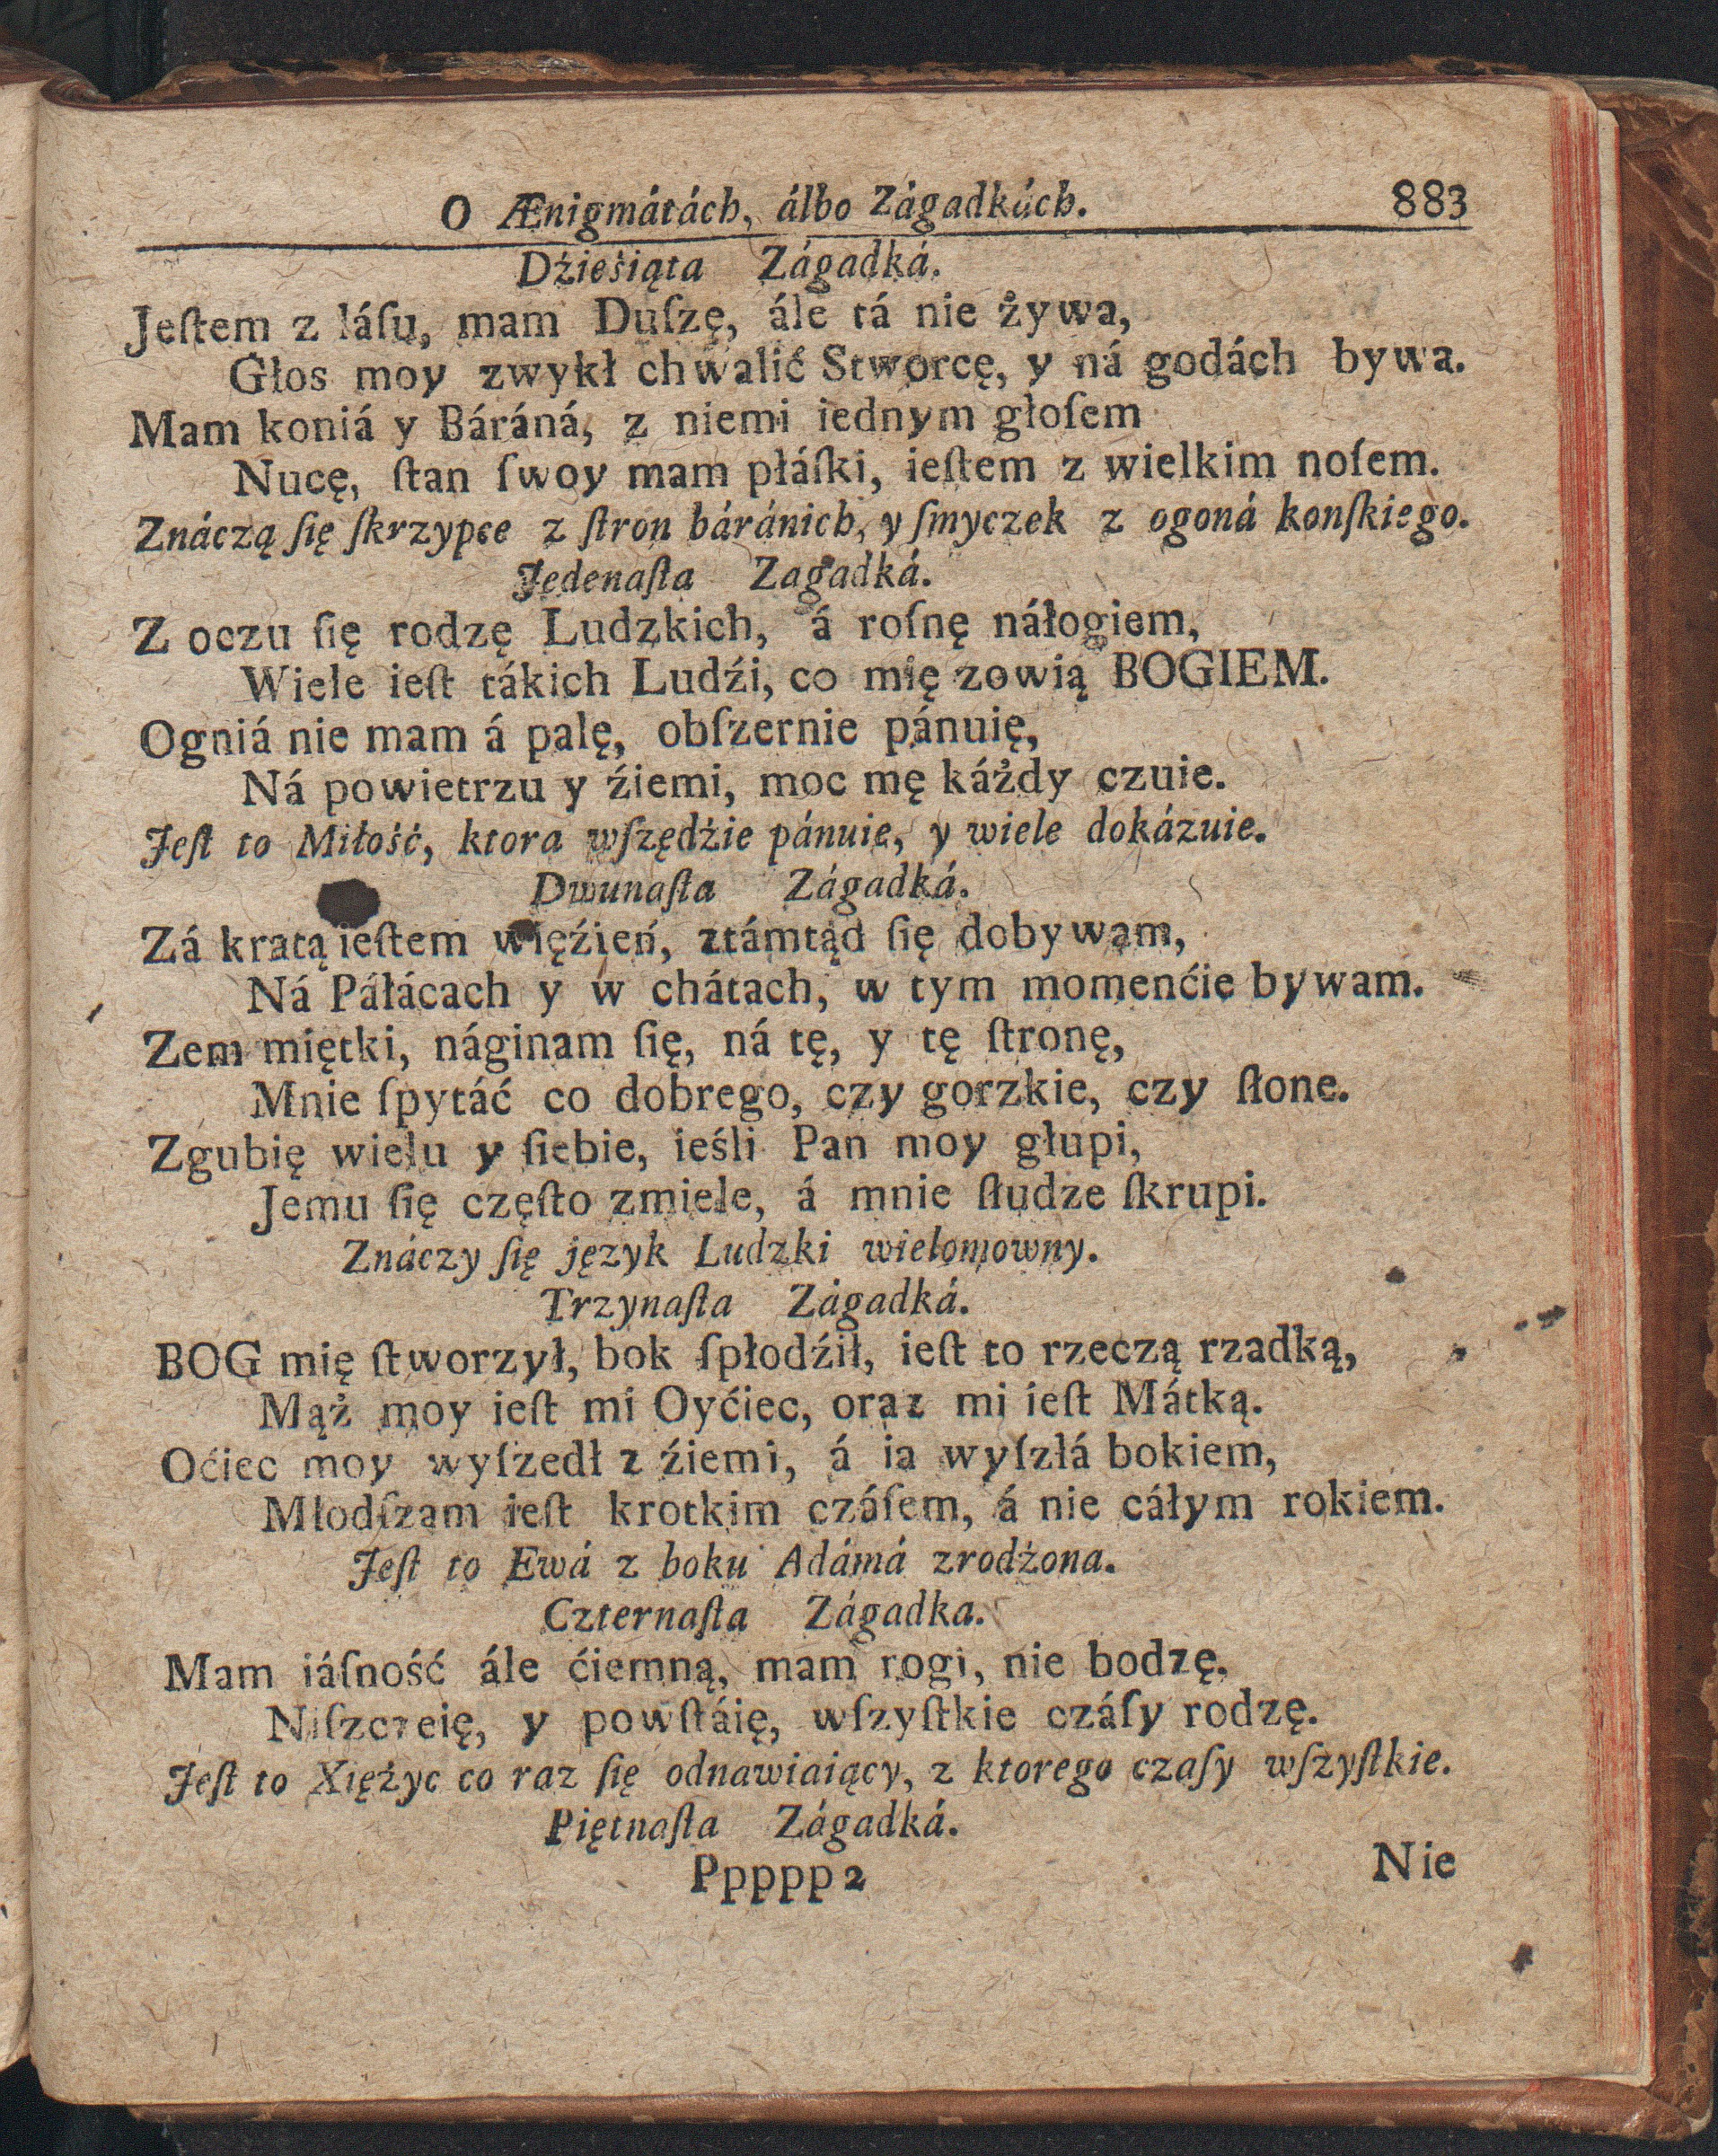 O Ænigmátách, álbo Zágadkách. 883
Dźieśiąta Zágadká.
Jeſtem z láſu, mam Duſzę, ále tá nie żywa,
Głos moy zwykł chwalić Stworcę, y ná godách bywa.
Mam koniá y Báráná, z niemi iednym głoſem
Nucę, ſtan ſwoy mam płáſki, ieſtem z wielkim noſem.
Znáczą ſię ſkrzypce z ſtron báránich, y ſmyczek z ogoná konſkiego.
Jedenaſta Zagadká.
Z oczu ſię rodzę Ludzkich, á roſnę náłogiem,
Wiele ieſt tákich Ludźi, co mię zowią BOGIEM.
Ogniá nie mam á palę, obſzernie pánuię,
Ná powietrzu y źiemi, moc mę káżdy czuie.
Jeſt to Miłość, ktora wſzędźie pánuie, y wiele dokázuie.
Dwunaſta Zágadká.
Zá kratą ieſtem więźień, ztámtąd ſię dobywam,
Ná Páłácach y w chátach, w tym momenćie bywam.
Zem miętki, náginam ſię, ná tę, y tę ſtronę,
Mnie ſpytáć co dobrego, czy gorzkie, czy ſłone.
Zgubię wielu y ſiebie, ieśli Pan moy głupi,
Jemu ſię częſto zmiele, á mnie ſłudze ſkrupi.
Znáczy ſię język Ludzki wielomowny.
Trzynaſta Zágadká.
BOG mię ſtworzył, bok ſpłodźił, ieſt to rzeczą rzadką,
Mąż moy ieſt mi Oyćiec, oraz mi ieſt Mátką.
Oćiec moy wyſzedł z źiemi, á ia wyſzłá bokiem,
Młodſzam ieſt krotkim czáſem, á nie cáłym rokiem.
Jeſt to Ewá z boku Adámá zrodżona.
Czternaſta Zágadka.
Mam iáſność ále ćiemną, mam rogi, nie bodzę,
Niſzczeię, y powſtáię, wſzyſtkie czáſy rodzę.
Jeſt to Xiężyc co raz ſię odnawiaiący, z ktorego czaſy wſzyſtkie.
Piętnaſta Zágadká.
Ppppp2 Nie